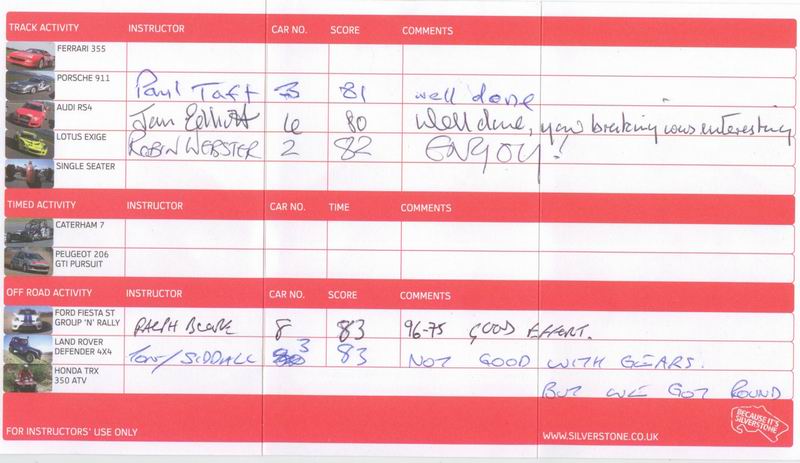 TRACK ACTIVITY INSTRUCTOR CAR NO. SCORE COMMENTS
FERRARI 355
PORSCHE 911 Paul Taft 3 81 well done
AUDI RS4 Jan Elliott 6 80 Well done, your breaking was interesting
LOTUS EXIGE ROBIN WEBSTER 2 82 ENJOY!
SINGLE SEATER
TIMED ACTIVITY INSTRUCTOR CAR NO. TIME COMMENTS
CATERHAM 7
PEUGEOT 206
GTI PURSUIT
OFF ROAD ACTIVITY INSTRUCTOR CAR NO. SCORE COMMENTS
FORD FIESTA ST
GROUP 'N' RALLY RALPH 8 83 96-75 GOOD EFFORT.
LAND ROVER
DEFENDER 4X4 TONY SIDDALL 3 83 NOT GOOD WITH GEARS.
HONDA TRX
350 ATV BUT WE GOT ROUND
FOR INSTRUCTORS' USE ONLY WWW.SILVERSTONE.CO.UK
BECAUSE IT'S
SILVERSTONE